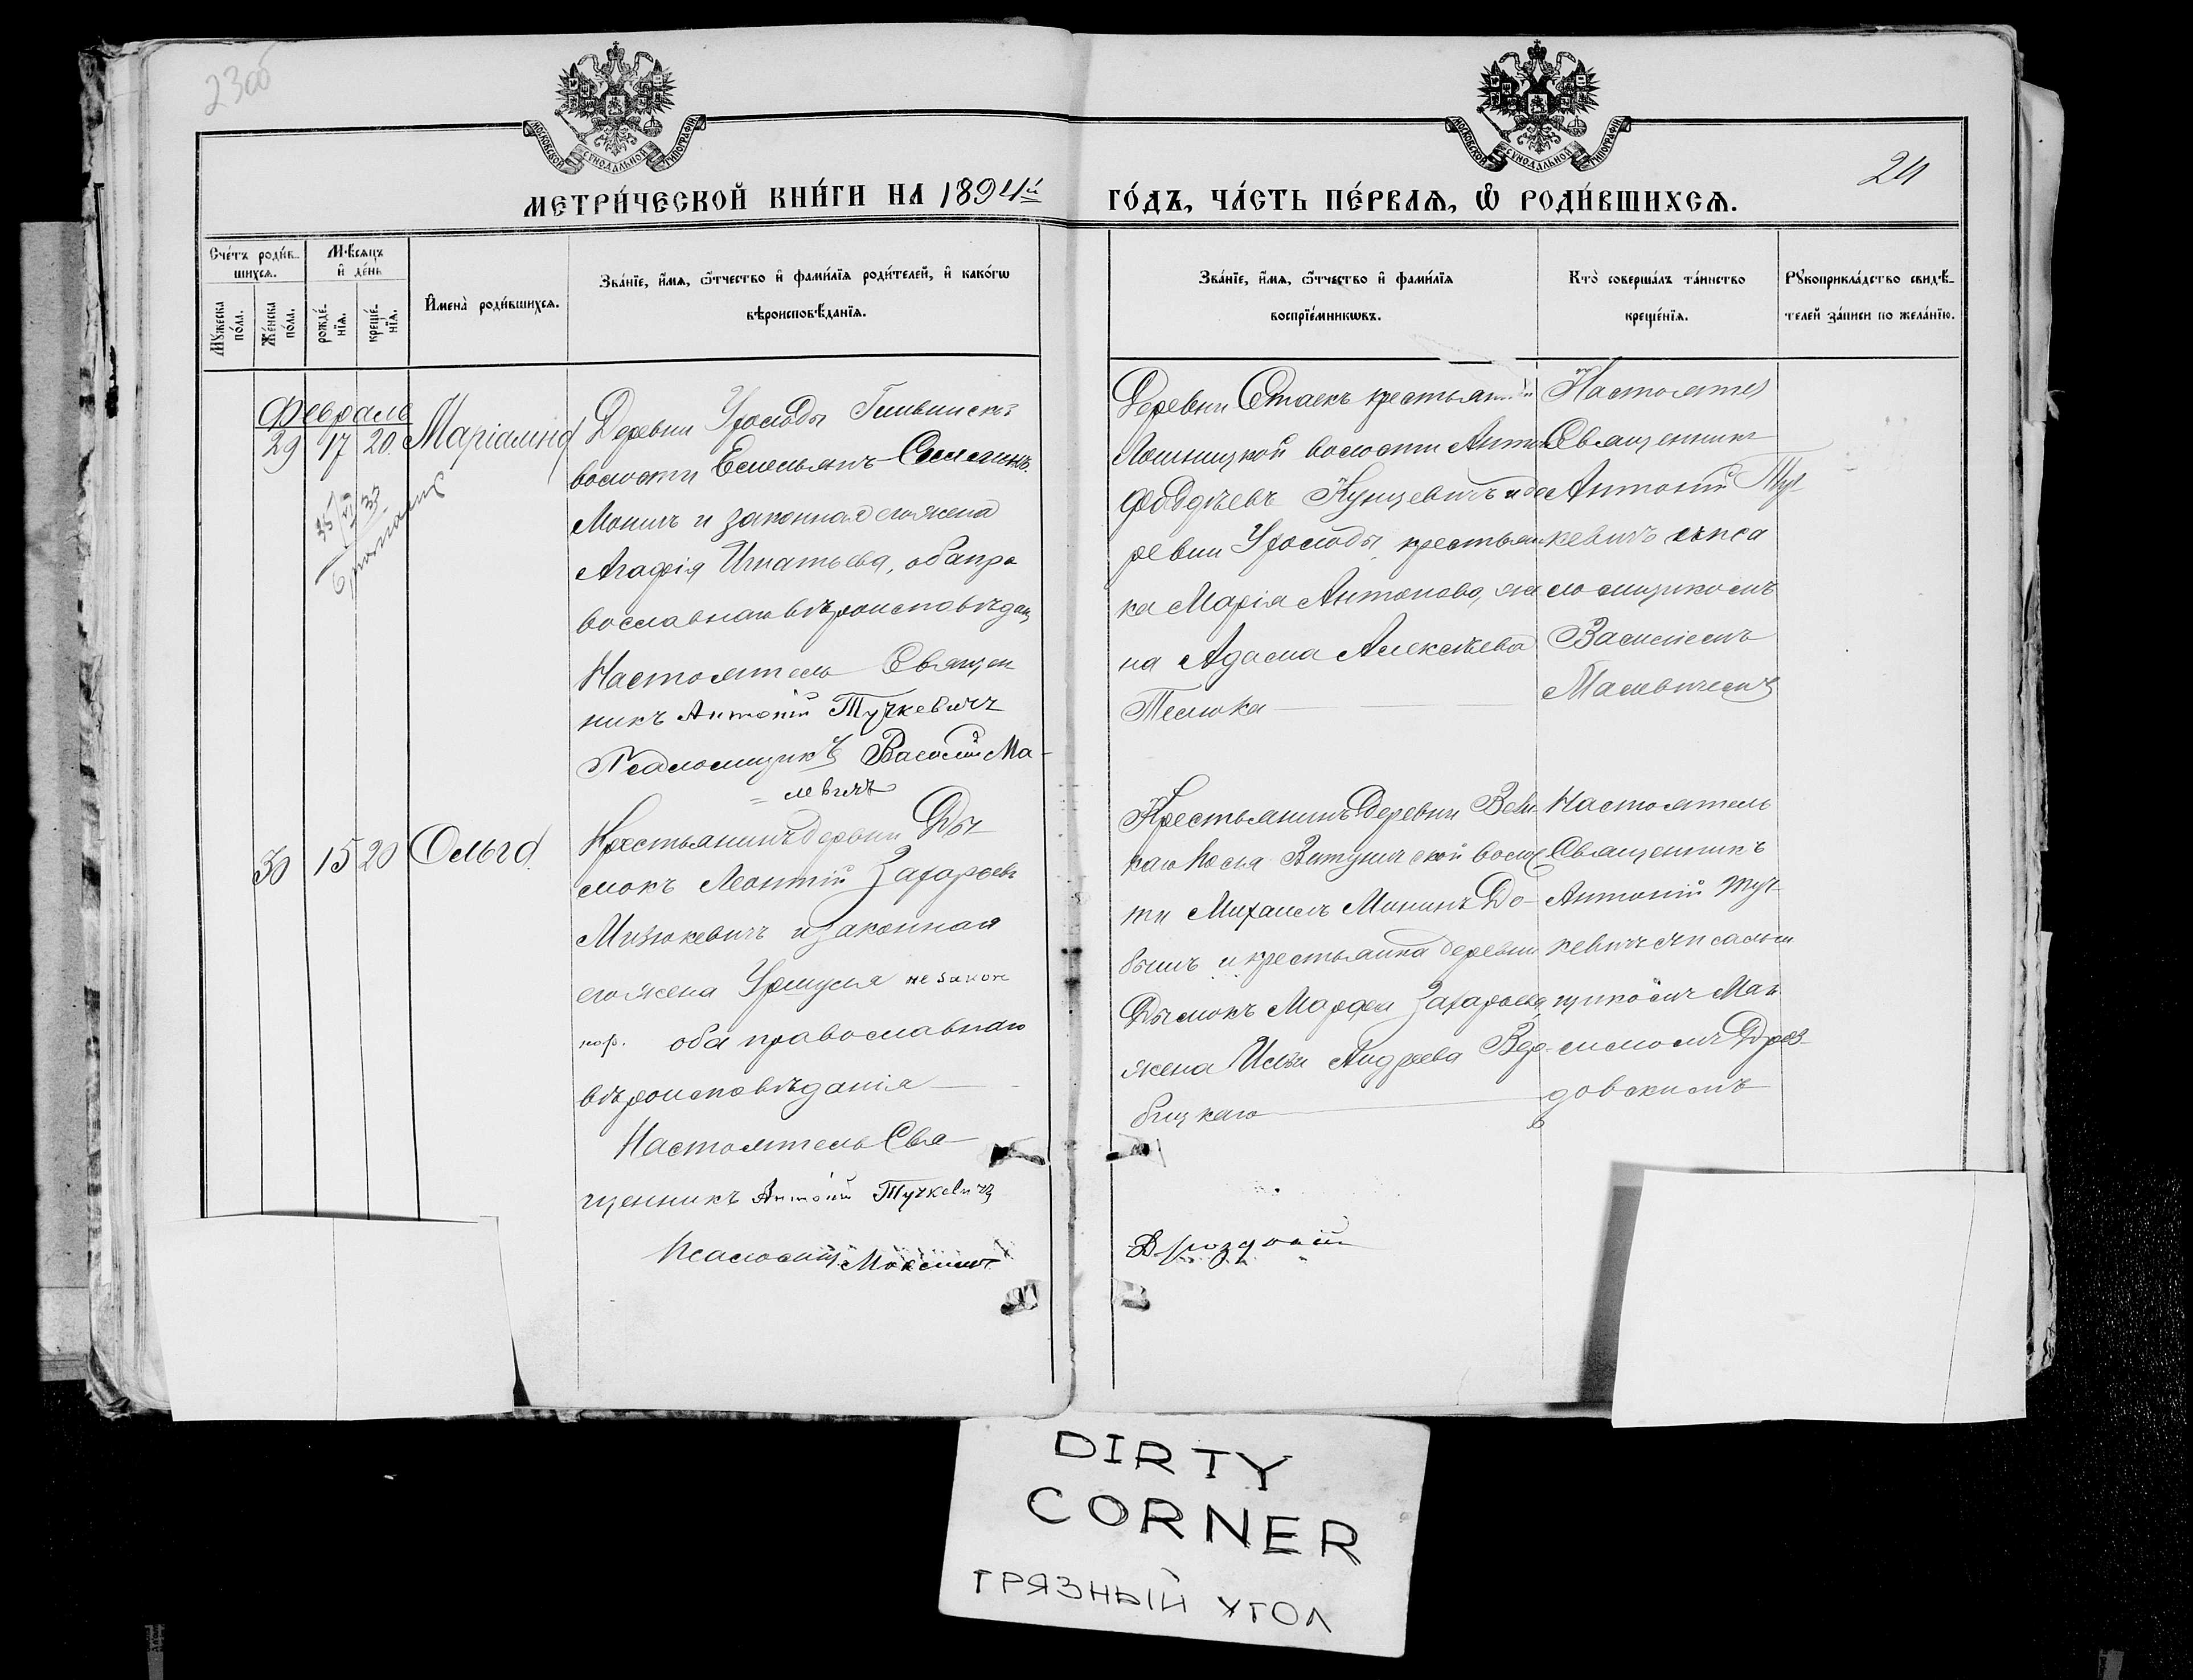 23об
МОСКОВСКОЙ СУНОДАЛЬНОЙ ТИПОГРАФІИ
МОСКОВСКОЙ СУНОДАЛЬНОЙ ТИПОГРАФІИ
24
МЕТРИ́ЧЕСКОЙ КНИ́ГИ НА 1894й
ГО́ДЪ, ЧА́СТЬ ПЕ́РВАѦ, Ѡ РОДИ́ВШИХСѦ.
Сче́тъ роди́в-
шихсѧ.
Мꙋ́жеска
по́ла.
Же́нска
по́ла.
Мѣ́сѧцъ
и де́нь
рожде́-
нїѧ.
креще́-
нїѧ.
И҆мена̀ роди́вшихсѧ.
Зва́нїе, и҆́мѧ, ѻ҆́тчество и҆ фами́лїѧ роди́телей, и҆ како́гѡ
вѣроисповѣ́данїѧ.
Зва́нїе, и҆́мѧ, ѻ҆́тчество и҆ фами́лїѧ
воспрїе́мникѡвъ.
Кто̀ соверша́лъ та́инство
креще́нїѧ.
Рꙋкоприкла́дство свидѣ́-
телей за́писи по жела́нїю.
Февраль
29 17 20 Маріамна
Деревни Уголоды
волости Емельянъ Семеновъ
Мониъ и законная его жена
Агафія Игнатьева, оба пра
вославнаго вѣроисповѣдан
Настоятель Священ
никъ Антоній Тучкевичъ
Псаломщикъ Василій Ма-
=левичъ
Деревни Стаекъ крестьянинъ
Лошницкой волости Антонъ
Фаддѣевъ Кунцевичъ и де
ревни Уголоды крестьян
ка Марія Антонова, же
на Адама Алексѣева
Телюка
Настоятел
Священникъ
Антоній Туч-
кевичъ съ пса
ломщикомъ
Василіемъ
Малевичемъ
30 15 20 Ольга
Крестьянинъ деревни Ды-
мокъ Леонтій Захаровъ
Мизюкевичъ и законная
его жена Уршуля не закон
нор. оба православнаго
вѣроисповѣданія
Настоятель Свя-
щенникъ Антоній Тучкевичъ
Псаломщ. Максимъ
Дроздовскій
Крестьянинъ деревни Вели
каго Поля Витуничской волос
ти Михаилъ Мининъ До-
былъ и крестьянка деревни
Дымокъ Марфа Захарова,
жена Ильи Андреева Вер-
бицкаго
Настоятель
Священникъ
Антоній Туч-
кевичъ съ псалом
щикомъ Мак
симомъ Дроз-
довскимъ
DIRTY
CORNER
ГРЯЗНЫЙ УГОЛ